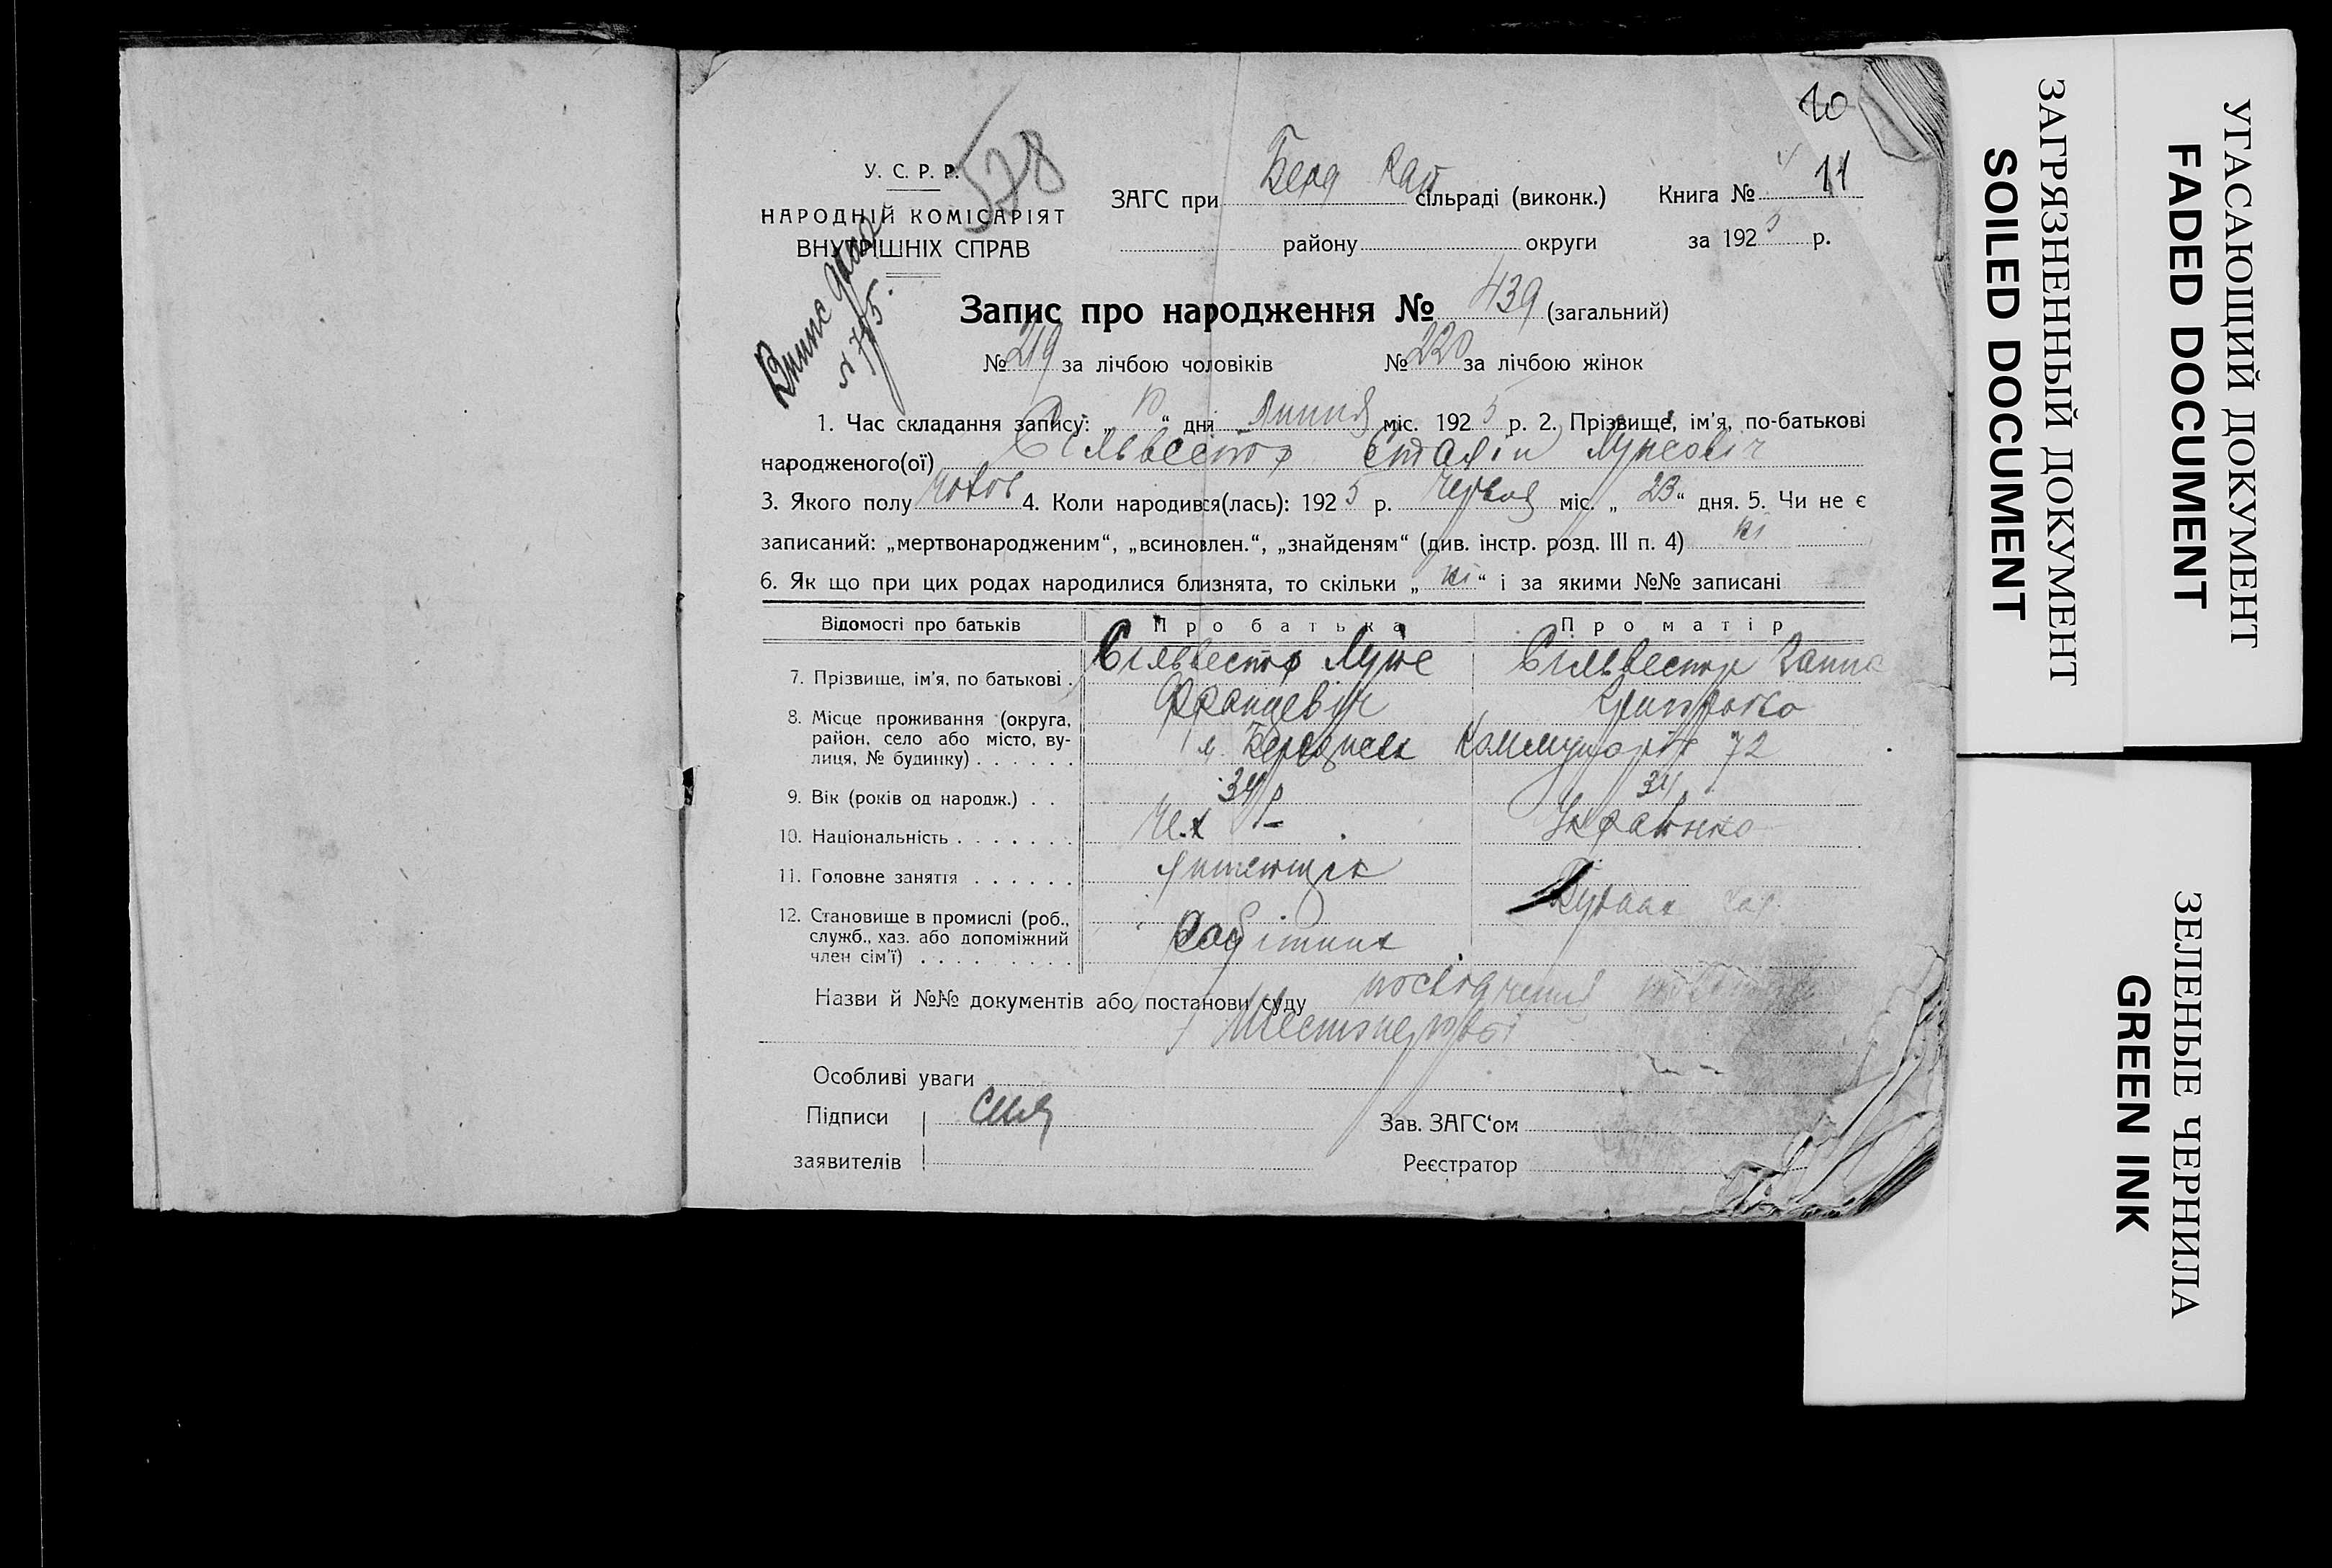 10
У. С. Р. Р.
НАРОДНІЙ КОМІСАРІЯТ
ВНУТРІШНІХ СПРАВ
578
ЗАГС при Берд сільраді (виконк.) Книга № 11
району округи за 1925 р.
Запис про народження № 439 (загальний)
№ 219 за лічбою чоловіків № 220 за лічбою жінок
1. Час складання запису: „ “ дня липня міс. 1925 р. 2. Прізвище, ім'я, по-батькові
народженого(ої) Сільвестор Сталін
3. Якого полу чолов 4. Коли народився(лась): 1925 р. червня міс. „23“ дня. 5. Чи не є
записаний: „мертвонародженим“, „всиновлен.“, „знайденям“ (див. інстр. розд. III п. 4) ні
6. Як що при цих родах народилися близнята, то скільки „ні“ і за якими №№ записані
Відомості про батьків Про батька Про матір
7. Прізвище, ім'я, по батькові . Сільвестор Сільвестор Ганна
Францевіч
8. Місце проживання (округа,
район, село або місто, ву-
лиця, № будинку) . . . . . . м. Бердянск 72
9. Вік (років од народж.) . . 34 р 34
10. Національність . . . . . . . Чех Українка
11. Головне заняття . . . . . .
12. Становище в промислі (роб.,
служб., хаз. або допоміжний
член сім'ї) . . . . . . . . . Робітник
Назви й №№ документів або постанови суду посвідчення
Особливі уваги
Підписи
заявителів
Зав. ЗАГС'ом
Реєстратор
ЗАГРЯЗНЕННЫЙ ДОКУМЕНТ
SOILED DOCUMENT
УГАСАЮЩИЙ ДОКУМЕНТ
FADED DOCUMENT
ЗЕЛЕНЫЕ ЧЕРНИЛА
GREEN INK